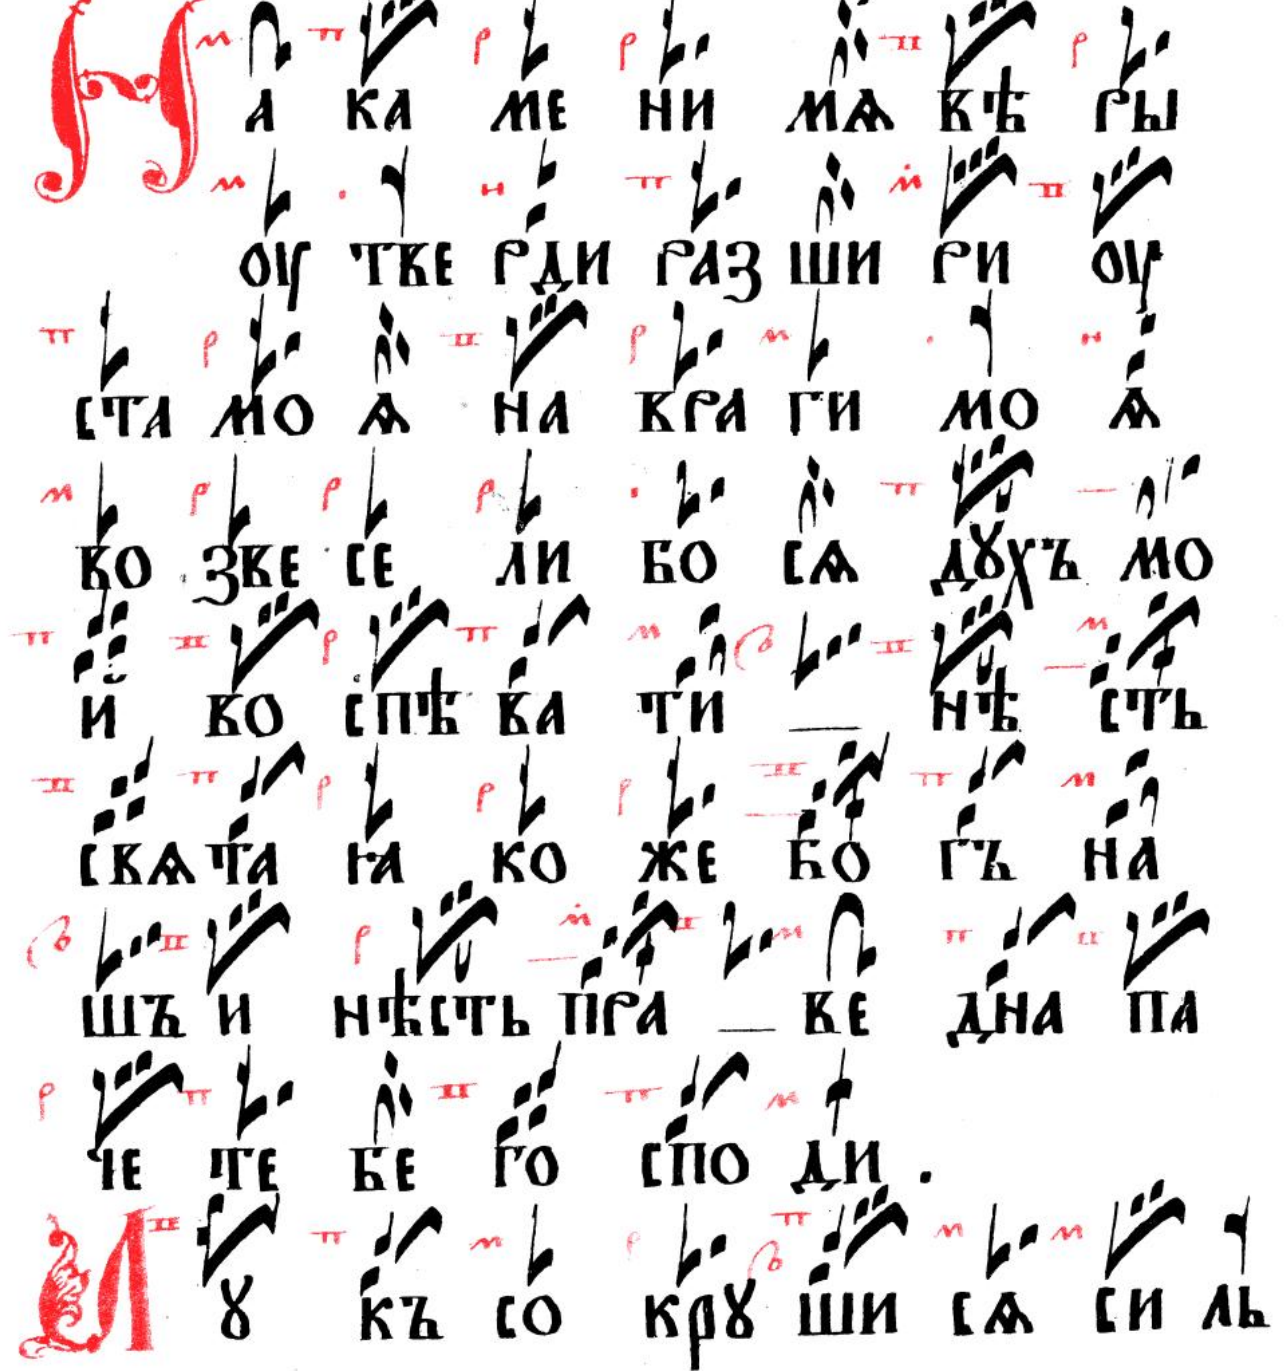 НА КА МЕ НИ МѦ ВѢ РЫ
ОУ ТВЕ РДИ РАЗ ШИ РИ ОУ
СТА МО Ѧ НА ВРА ГИ МО Ѧ
ВО ЗВЕ СЕ ЛИ БО СѦ ДꙊХЪ МО
Й ВО СПѢ ВА ТИ НѢ СТЬ
СВѦ ТА ꙖКО ЖЕ БО ГЪ НА
ШЪ И НѢСТЬ ПРА ВЕ ДНА ПА
ЧЕ ТЕ БЕ ГО СПО ДИ .
ЛꙊ КЪ СО КРꙊ ШИ СѦ СИ ЛЬ